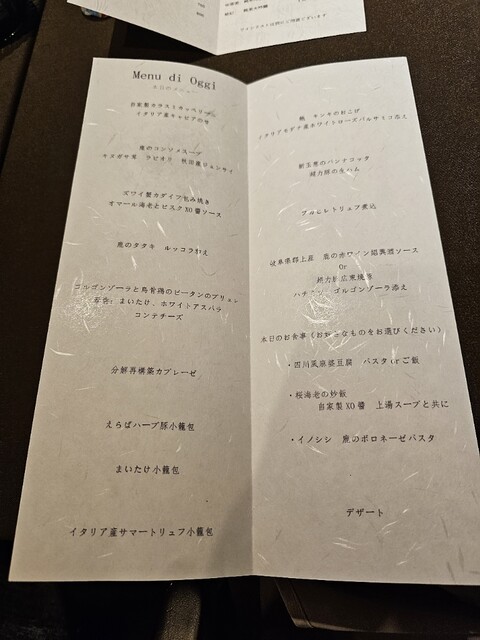 Menu di Oggi
本日のメニュー
自家製カラスミ
イタリア産キャビアの
鹿のコンソメスープ
キヌガサ茸 ラビオリ 秋田産じュンサイ
ズワイ蟹カダイフ包み焼き
オマール海老とビスクXO醬ソース
鹿のタタキ ルッコラ和え
ゴルゴンゾーラと烏骨鶏のピータンのブリュレ
まいたけ、ホワイトアスパラ
コンテチーズ
分解再構築カプレーゼ
えらぶハーブ豚小籠包
まいたけ小籠包
イタリア産サマートリュフ小籠包
桃 キンキのおこげ
イタリアモデナ産ホワイトローズバルサミコ添え
新玉葱のパンナコッタ
トリュフ煮込
岐阜県郡上産 鹿の赤ワイン紹興酒ソース
Or
広東焼
ゴルゴンゾーラ添え
本日のお食事(お好きなものをお選びください)
・四川風麻婆豆腐 パスタorご飯
・桜海老の炒飯
自家製XO醬 上湯スープと共に
・イノシシ 鹿のボロネーゼパスタ
デザート